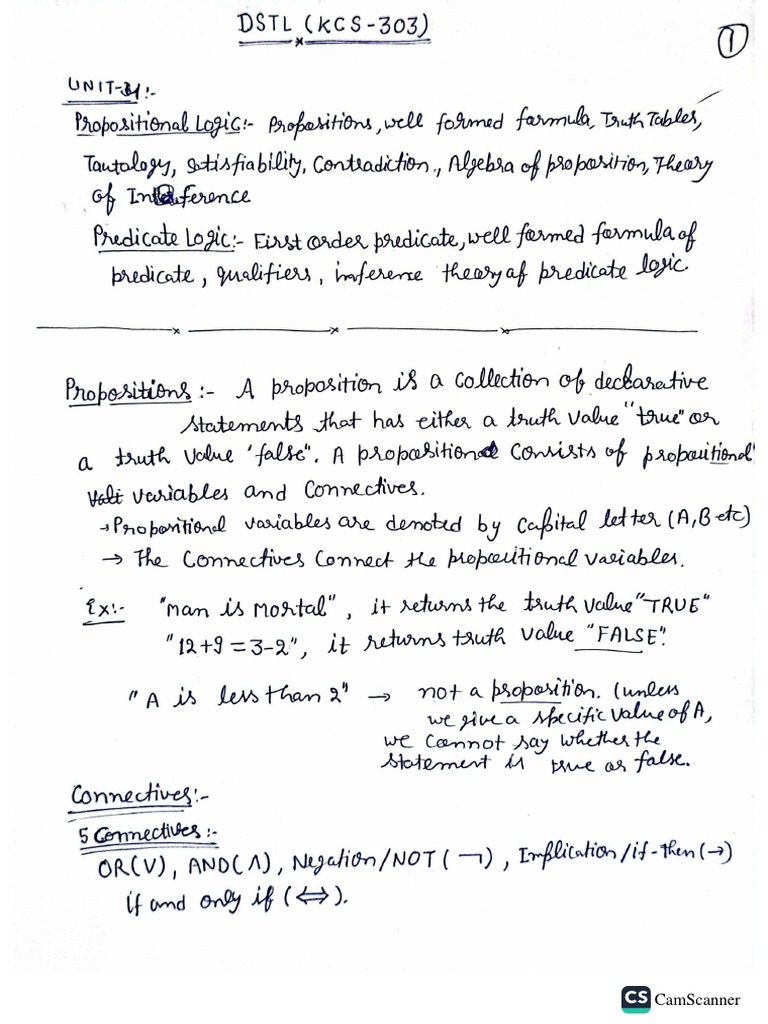 DSTL (KCS-303)
1
UNIT-4:-
Propositional Logic:- Propositions, well formed formula, Truth Tables,
Tautology, Satisfiability, Contradiction, Algebra of proposition, Theory
of Inference
Predicate Logic:- First order predicate, well formed formula of
predicate, qualifiers, inference theory of predicate logic
Propositions:- A proposition is a collection of declarative
statements that has either a truth value "true" or
a truth value 'false". A proposition consists of propositional
variables and connectives.
→ Propositional variables are denoted by capital letter (A, B etc)
→ The connectives connect the propositional variables.
Ex:- "Man is Mortal", it returns the truth value "TRUE"
"12+9 = 3-2", it returns truth value "FALSE".
"A is less than 2" → not a proposition. (unless
we give a specific value of A,
we cannot say whether the
statement is true or false.
Connectives:-
5 Connectives:-
OR(V), AND(Λ), Negation/NOT(¬), Implication/if-then(→)
if and only if (⇔).
CS CamScanner